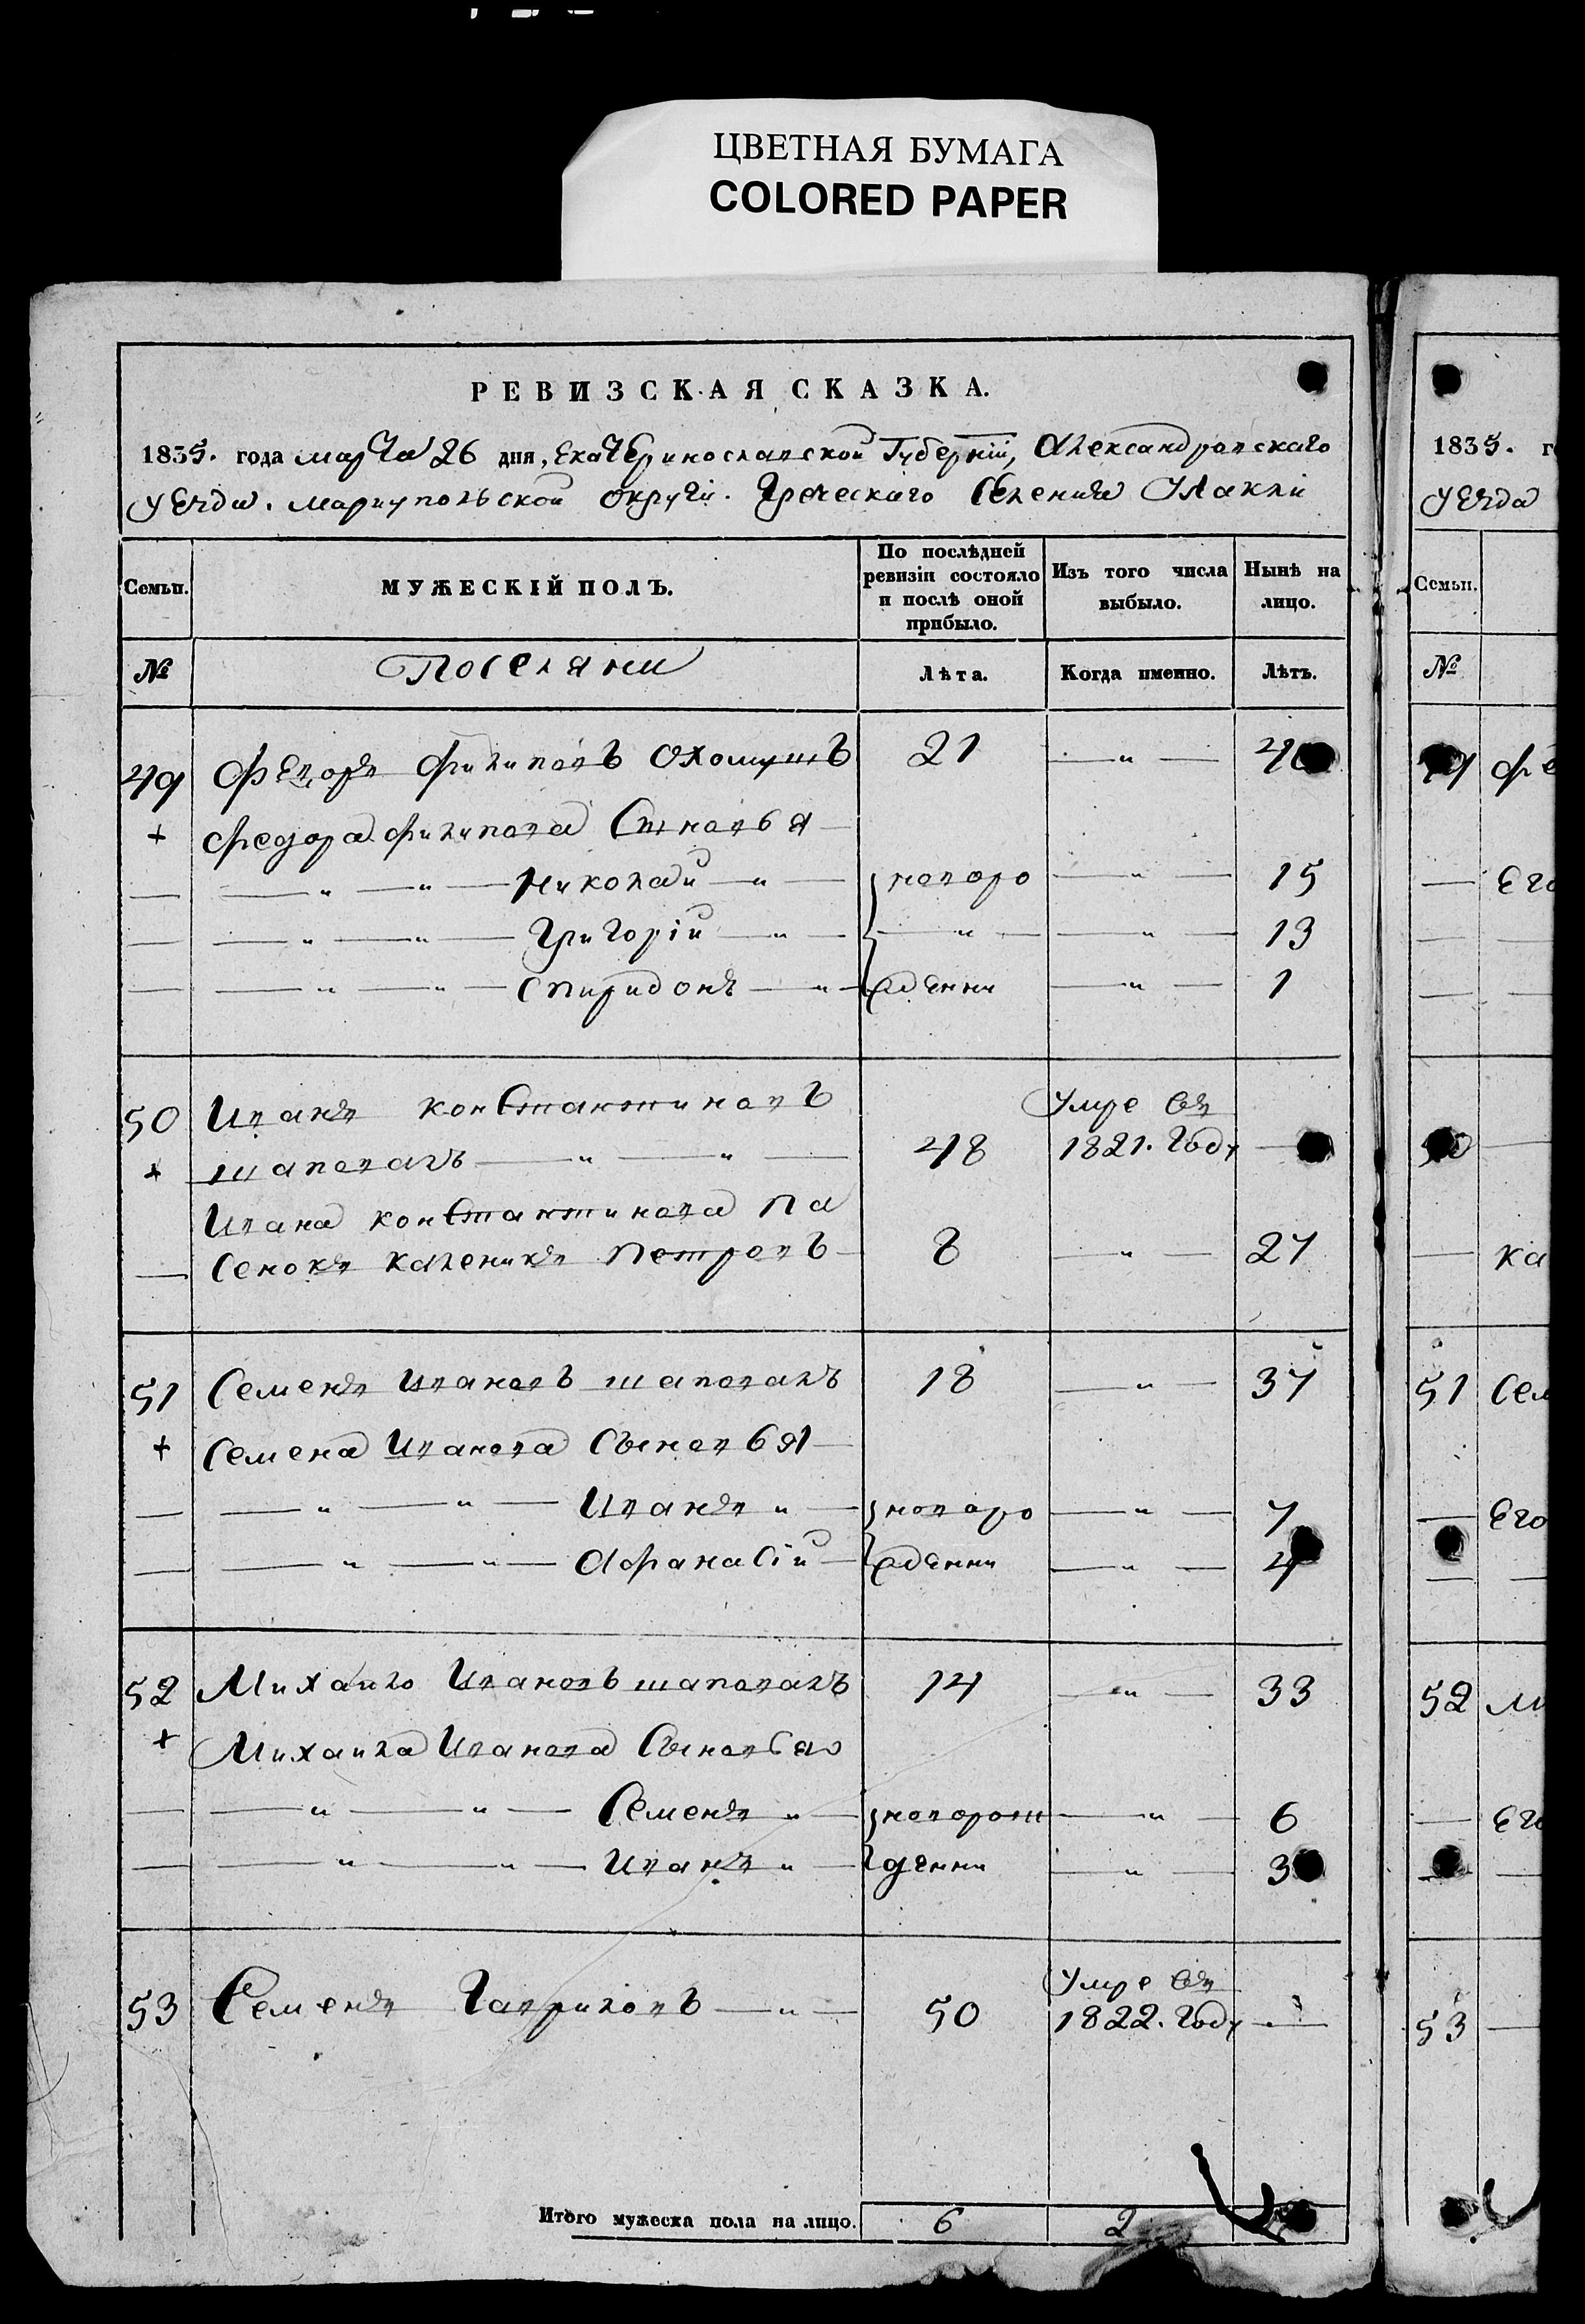 ЦВЕТНАЯ БУМАГА
COLORED PAPER
РЕВИЗСКАЯ СКАЗКА.
1835. года марта 26 дня, Екатеринославской Губерніи, Александровскаго
уезда. мариупольской округи. Греческаго Селения Улакли
Семьи. МУЖЕСКІЙ ПОЛЪ. По послѣдней ревизіи состояло и послѣ оной прибыло. Изъ того числа выбыло. Нынѣ на лицо.
№ Поселяни Лѣта. Когда именно. Лѣтъ.
49 Федоръ Филиповъ 21 — " — 40
+ Федора филипова Сыновья
— — " — " — Николай — " — новоро — " — 15
— — " — " — Григорій — " — — " — — " — 13
— — " — " — Спиридонъ — " — жденни — " — 1
50 Иванъ константиновъ Умре въ
+ шаповалъ — " — " — 48 1821. году —
Ивана константинова па
— сенокъ каленикъ петровъ 8 — " — 27
51 Семенъ Ивановъ шаповалъ 18 — " — 37
+ Семена Иванова Сыновья
— — " — " — Иванъ " — новоро — " — 7
— — " — " — Афанасій — жденни — " — 4
52 Михайло Ивановъ шаповалъ 14 — " — 33
+ Михайла Иванова Сыновья
— — " — " — Семенъ " — новорож — " — 6
— — " — " — Иванъ " — денни — " — 3
53 Семенъ Гавриловъ — " — 50 Умре въ 1822. году —
Итого мужеска пола на лицо. 6 2
1835.
уезда
Семьи.
№
Его
51 Сем
Его
52 Ми
Его
53